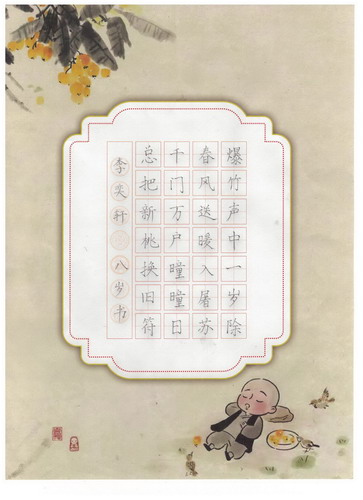 爆竹声中一岁除
春风送暖入屠苏
千门万户曈曈日
总把新桃换旧符
李奕轩 八岁书